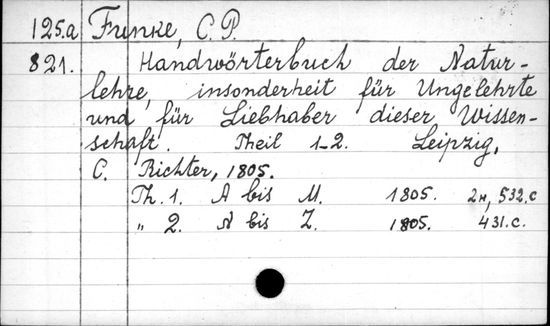 125.a Funke, C. P.
821. Handwörterbuch der Natur-
lehre, insonderheit für Ungelehrte
und für Liebhaber dieser Wissen-
schaft. Theil 1-2. Leipzig,
C. Richter, 1805.
Th. 1. A bis M. 1805. 2н, 532.c
" 2. N bis Z. 1805. 431.c.